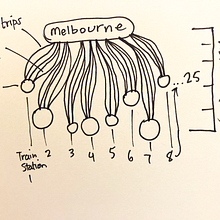 trips
melbourne
...25
Train 2 3 4 5 6 7 8
Station
1